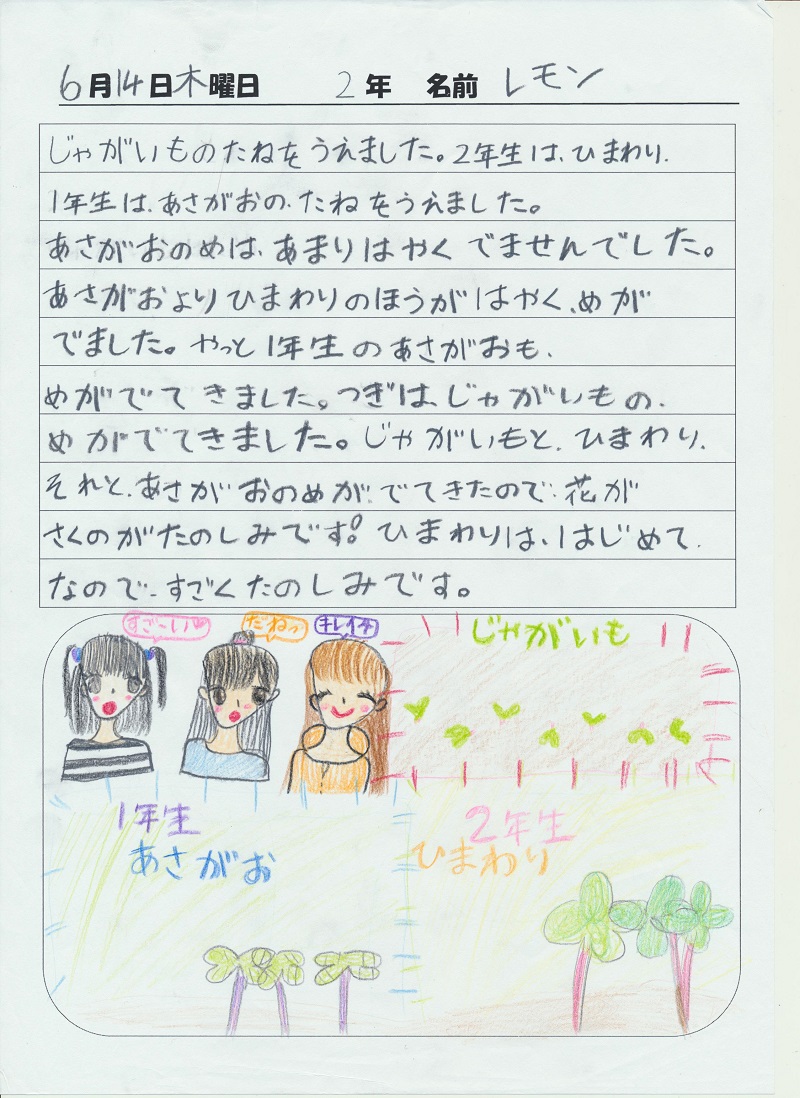 6月14日木曜日 2年 名前 レモン
じゃがいものたねをうえました。2年生は、ひまわり、
1年生は、あさがおの、たねをうえました。
あさがおのめは、あまりはやくでませんでした。
あさがおよりひまわりのほうがはやく、めが
でました。やっと1年生のあさがおも、
めがでてきました。つぎは、じゃがいもの、
めがでてきました。じゃがいもと、ひまわり、
それと、あさがおのめが、でてきたので、花が
さくのがたのしみです。ひまわりは、はじめて、
なので、すごくたのしみです。
すごーい♡ だねっ キレイ
じゃがいも
1年生
あさがお
2年生
ひまわり